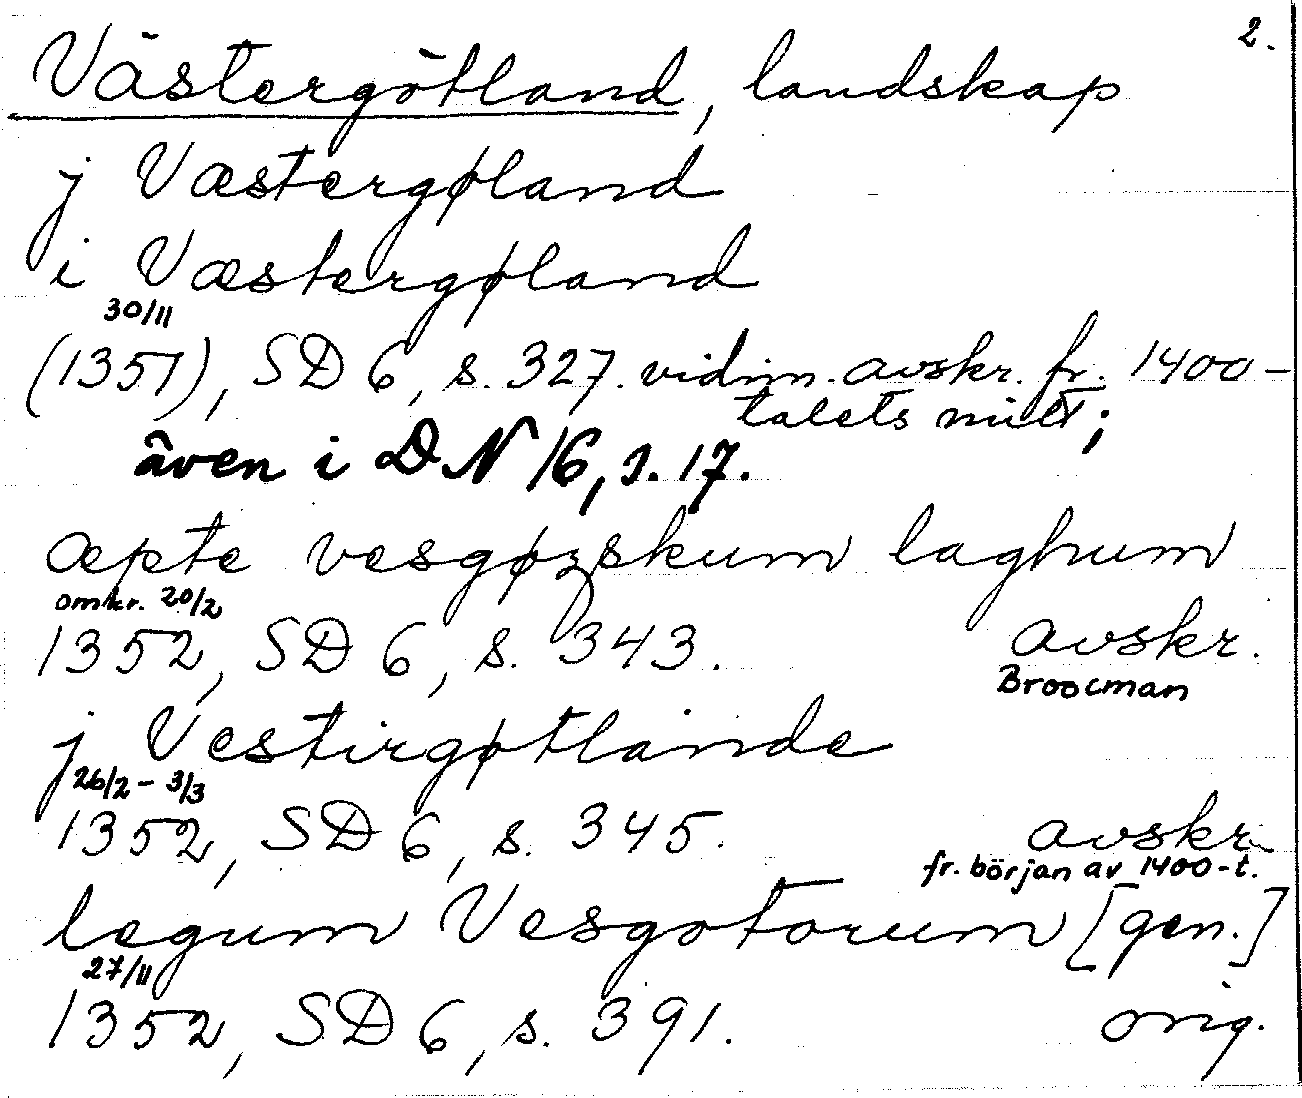 2.
Västergötland, landskap
j Væstergøland
i Væstergøland
30/11
(1351), SD 6, s. 327. vidim. avskr. fr. 1400-
talets mitt;
även i DN 16, s. 17.
æpte vesgøzskum laghum
omkr. 20/2
1352, SD 6, s. 343. avskr.
Broocman
j Vestirgøtlande
26/2 - 3/3
1352, SD 6, s. 345. avskr
fr. början av 1400-t.
legum Vesgotorum [gen.]
27/11
1352, SD 6, s. 391. orig.